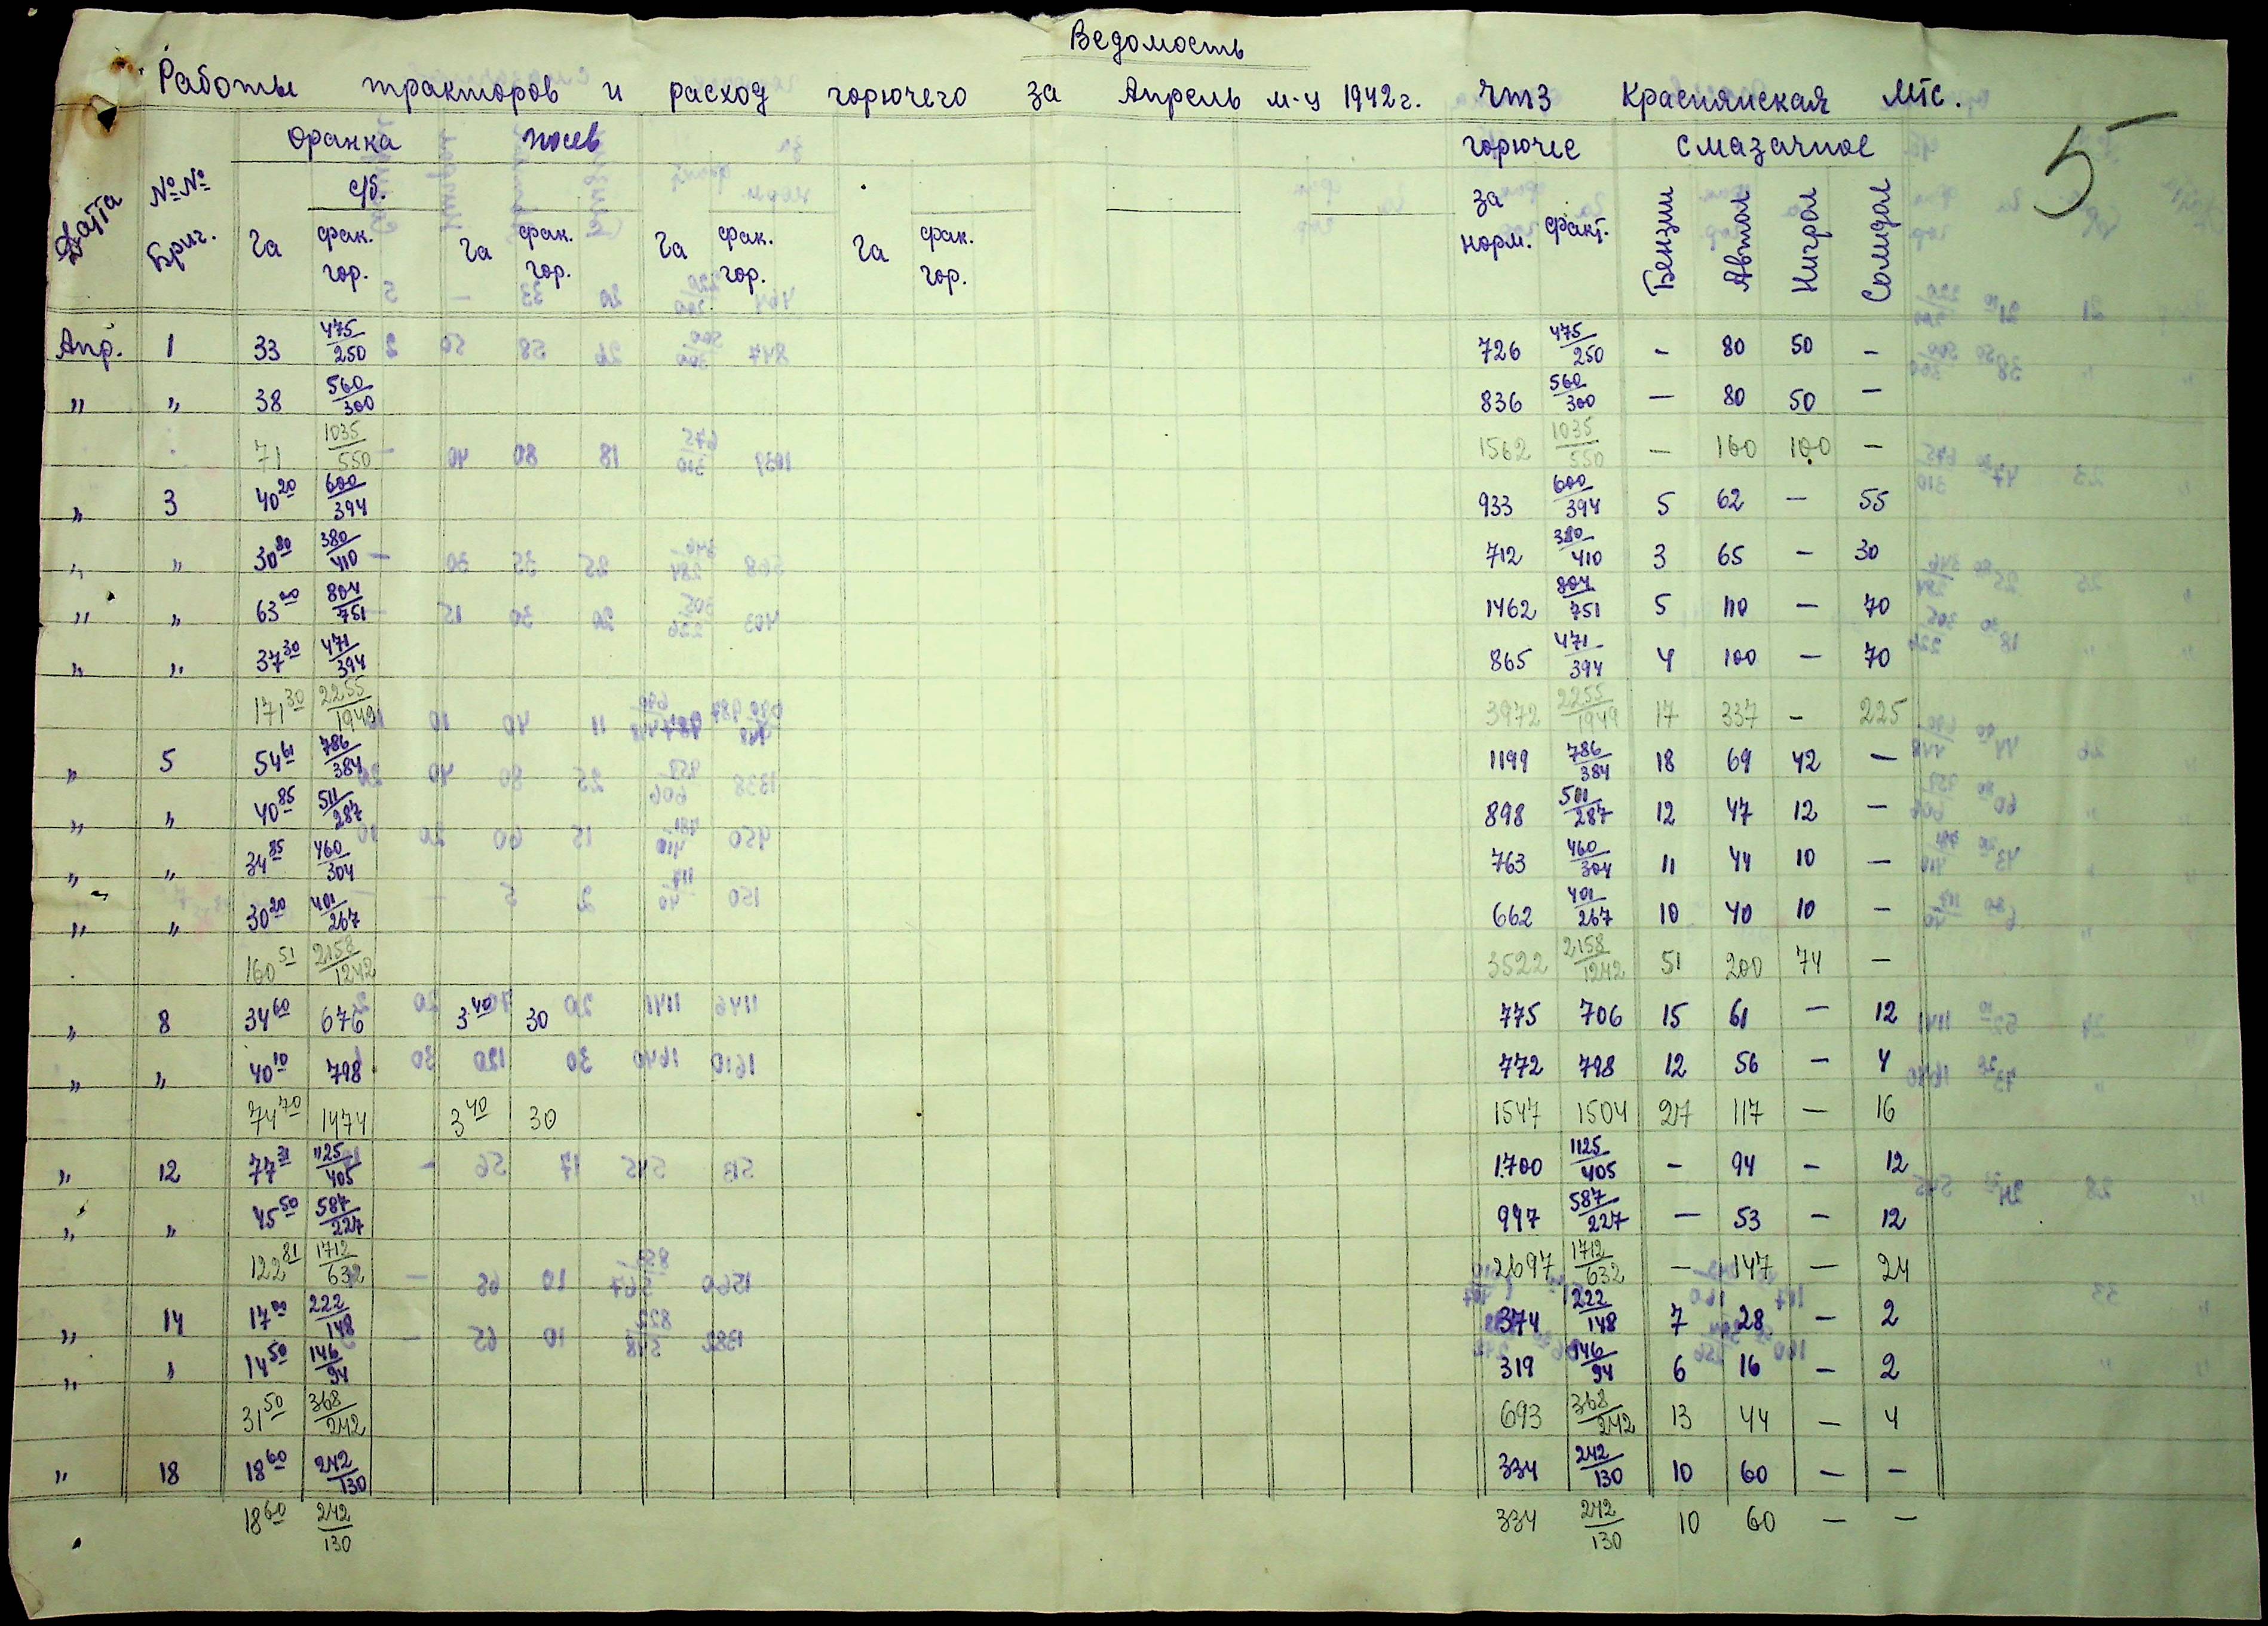 Ведомость
Работы тракторов и расход горючего за Апрель м-ц 1942 г. ЧТЗ Краснянская МТС.
5
Оранка посев горючее смазачное
Датта №№ Бриг. с/б. за норм. факт. Бензин Автол Нигрол Солидол
Га фак. гор. Га фак. гор. Га фак. гор. Га фак. гор.
Апр. 1 33 475/250 726 475/250 - 80 50 -
" " 38 560/300 836 560/300 - 80 50 -
71 1035/550 1562 1035/550 - 160 100 -
" 3 40 20 600/394 933 600/394 5 62 - 55
" " 30 80 380/410 712 380/410 3 65 - 30
" " 63 00 804/751 1462 804/751 5 110 - 70
" " 37 30 471/394 865 471/394 4 100 - 70
171 30 2255/1949 3972 2255/1949 17 337 - 225
" 5 54 61 786/384 1199 786/384 18 69 42 -
" " 40 85 511/287 898 511/287 12 47 12 -
" " 34 85 460/304 763 460/304 11 44 10 -
" " 30 20 401/267 662 401/267 10 40 10 -
160 51 2158/1242 3522 2158/1242 51 200 74 -
" 8 34 60 676 3 40 30 775 706 15 61 - 12
" " 40 10 798 772 798 12 56 - 4
74 70 1474 3 40 30 1547 1504 27 117 - 16
" 12 77 31 1125/405 1700 1125/405 - 94 - 12
" " 45 50 587/227 997 587/227 - 53 - 12
122 81 1712/632 2697 1712/632 - 147 - 24
" 14 17 00 222/148 374 222/148 7 28 - 2
" " 14 50 146/94 319 146/94 6 16 - 2
31 50 368/242 693 368/242 13 44 - 4
" 18 18 60 242/130 334 242/130 10 60 - -
18 60 242/130 334 242/130 10 60 - -